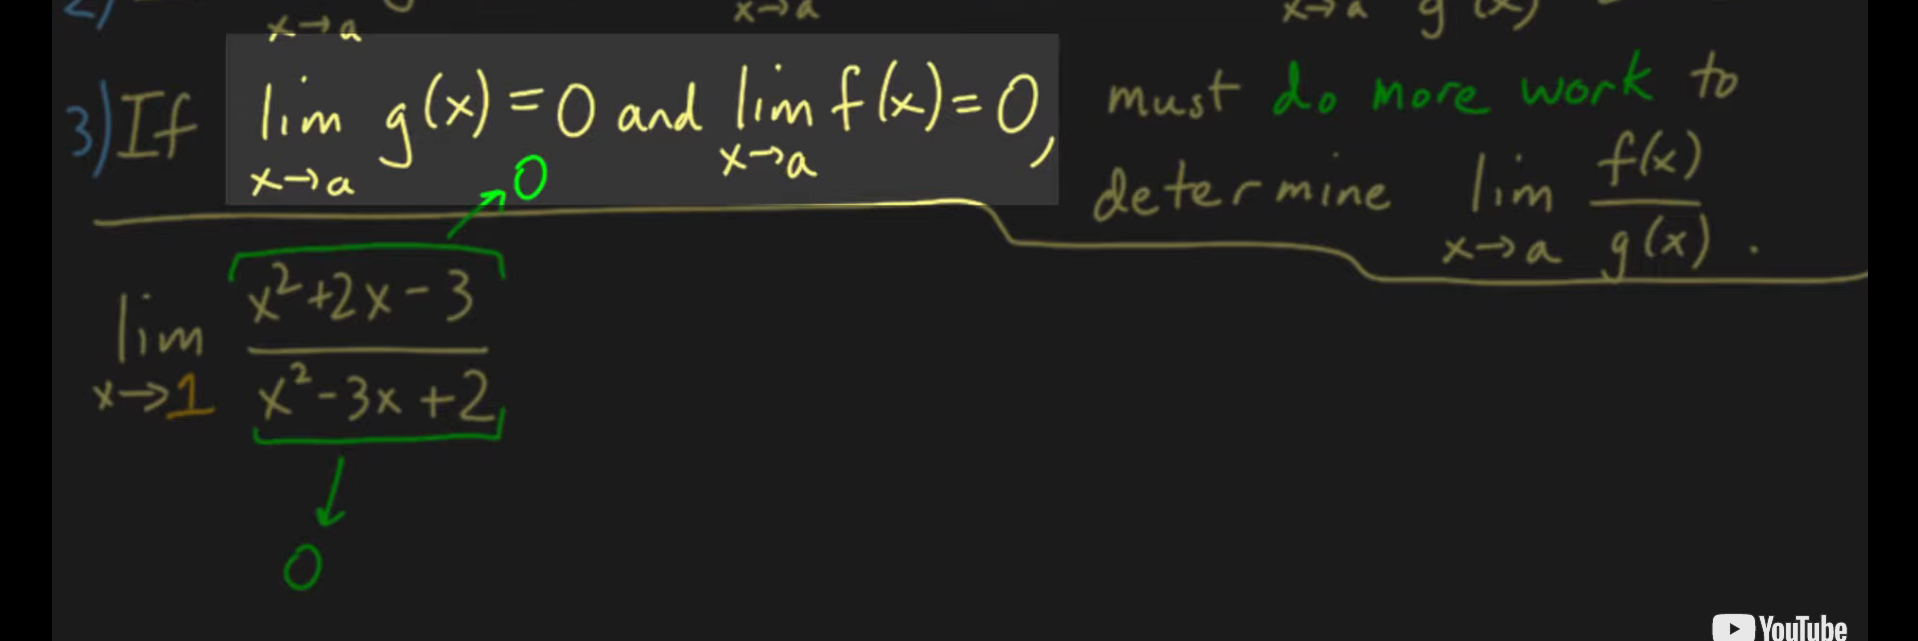 x→a x→a x→a g(x)
3) If lim g(x) = 0 and lim f(x) = 0, must do more work to
x→a x→a determine lim f(x)
x→a g(x) .
0
lim x²+2x-3
x→1 x²-3x+2
0
YouTube